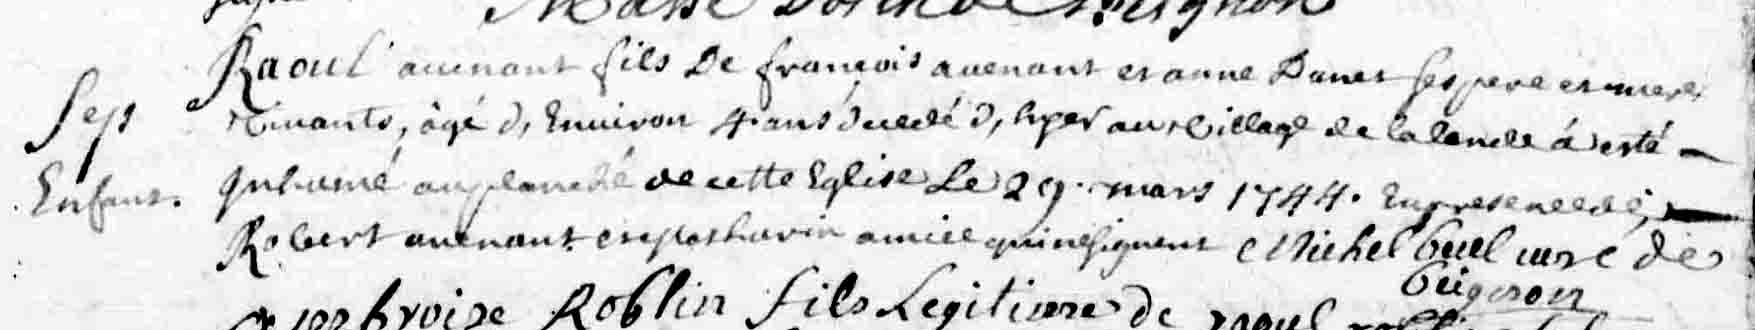 Raoul avenant fils De françois avenant et anne Danet ses pere et mere
Sep vivants, âgé d, Environ 4. ans decedé d, hyer au village de la lande á esté
Enfant. Inhumé au planché de cette Eglise Le 29. mars 1744. En presence de
Robert avenant et qui ne signent Michel Guel curé de
Bugeron
Roblin fils Legitime de